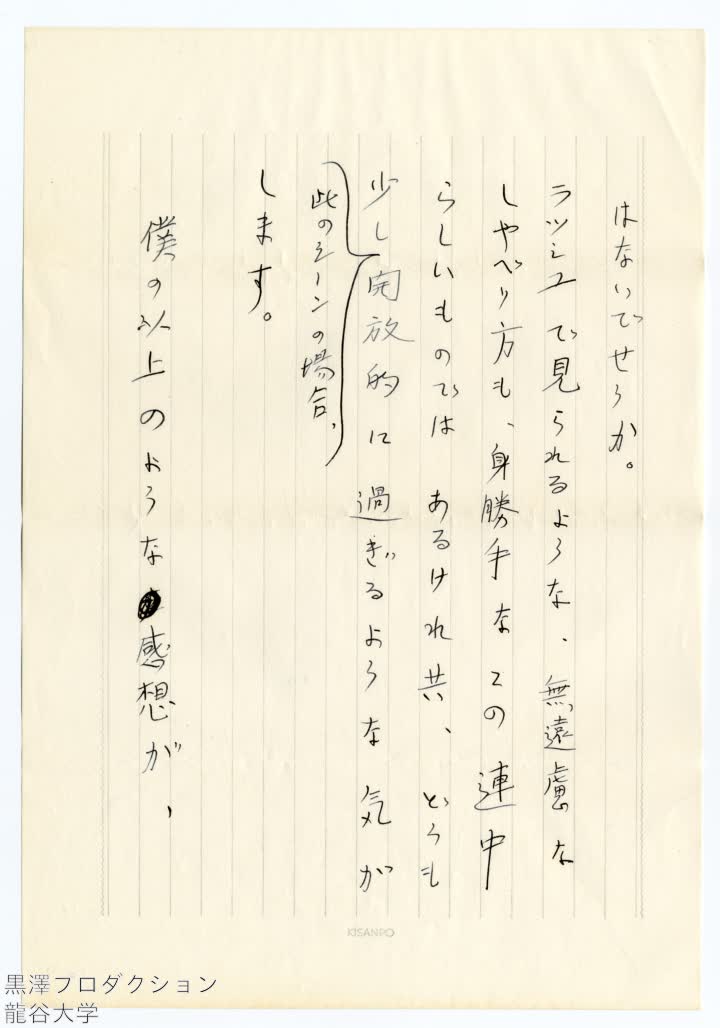 はないでせうか。
ラッシュで見られるような、無遠慮な
しやべり方も、身勝手なこの連中
らしいものではあるけれ共、どうも
少し開放的に過ぎるような気が
此のシーンの場合、
します。
僕の以上のような感想が、
KISANPO
黒澤プロダクション
龍谷大学